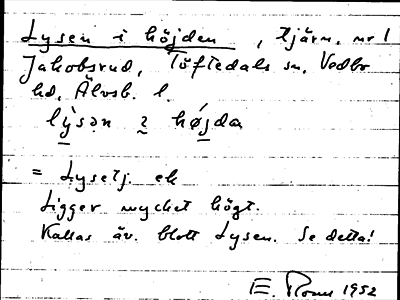 Lysen i höjden, tjärn, nr 1
Jakobsrud, Töftedals sn, Vedbo
hd, Älvsb. l.
lỳsən ɩ hǿjda
= Lysetj. ek
Ligger mycket högt.
Kallas äv. blott Lysen. Se detta!
E. 1952